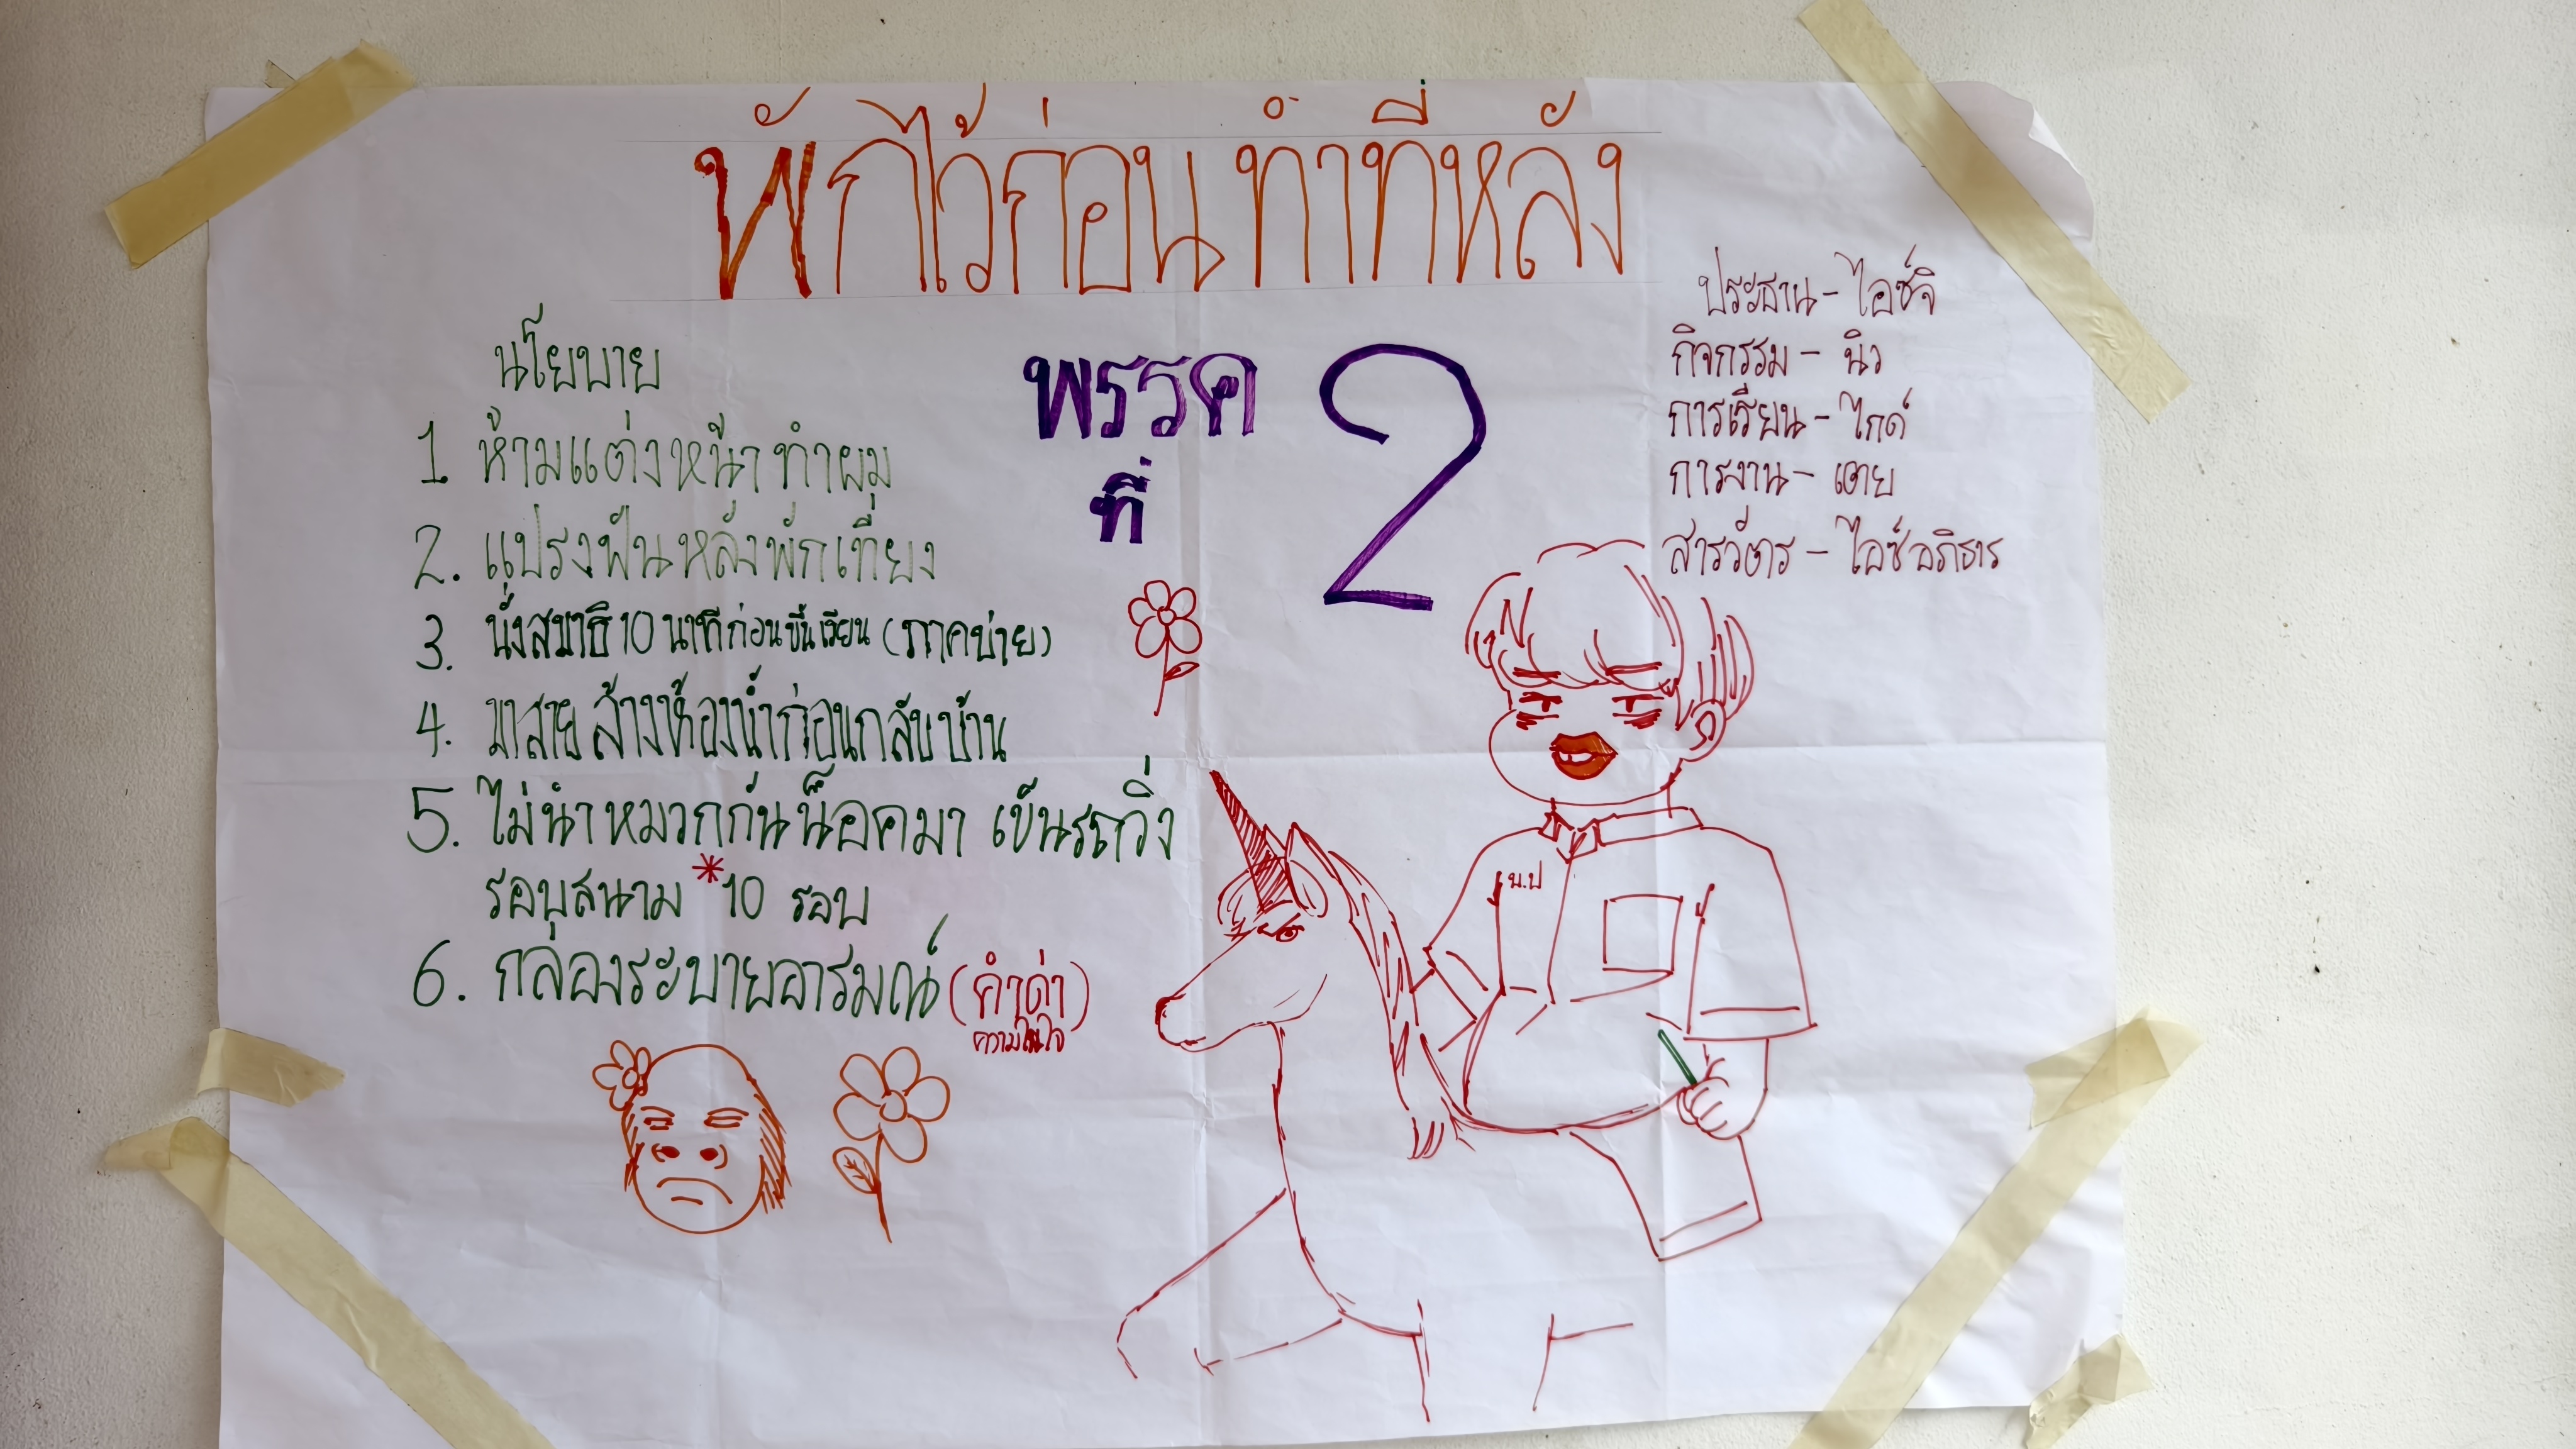 พักไว้ก่อน ทำทีหลัง
พรรค
ที่
2
นโยบาย
1 ห้ามแต่งหน้า ทำผม
2. แปรงฟันหลังพักเที่ยง
3. นั่งสมาธิ 10 นาทีก่อนขึ้นเรียน (ภาคบ่าย)
4. มาสาย ล้างห้องน้ำก่อนกลับบ้าน
5. ไม่นำหมวกกันน็อคมา เข็นรถวิ่ง
รอบสนาม *10 รอบ
6. กล่องระบายอารมณ์ (คำด่า)
ความในใจ
ประธาน - ไอซ์จิ
กิจกรรม - นิว
การเรียน - ไกด์
การงาน - เตย
สารวัตร - ไอซ์อภิธาร
น.ป